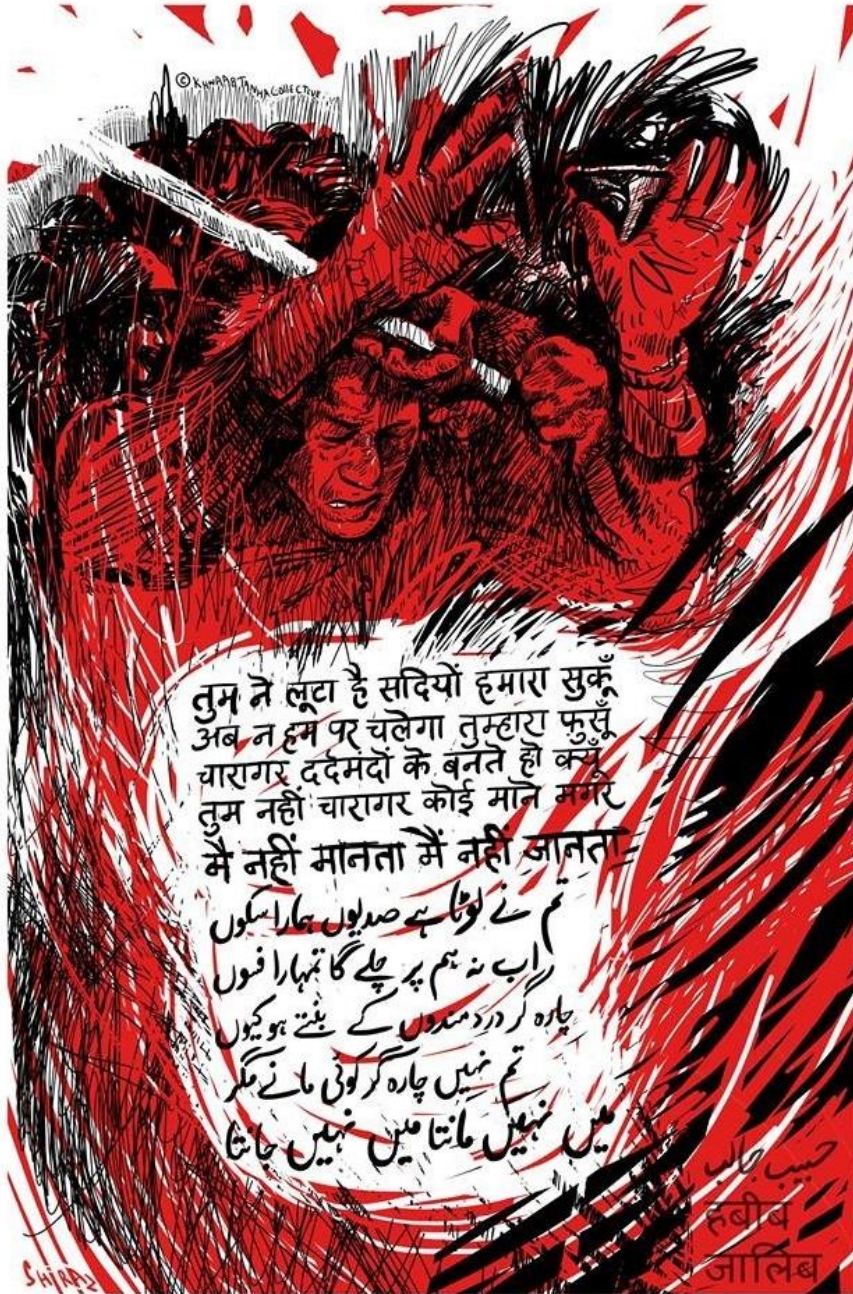 © KHWAABTANHACOLLECTIVE
तुम ने लूटा है सदियों हमारा सुकूँ
अब न हम पर चलेगा तुम्हारा फुसूँ
चारागर ददेमंदों के बनते हो क्यूँ
तुम नहीं चारागर कोई माने मगर
मै नहीं मानता मैं नहीं जानता
تم نے لوٹا ہے صدیوں ہمارا سکوں
اب نہ ہم پر چلے گا تمہارا فسوں
چارہ گر دردمندوں کے بنتے ہو کیوں
تم نہیں چارہ گر کوئی مانے مگر
میں نہیں مانتا میں نہیں جانتا
حبیب جالب
हबीब
जालिब
SHIRAZ